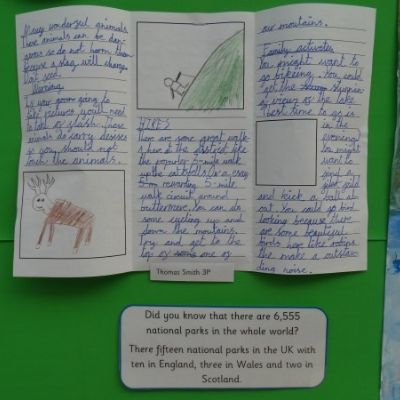 Many wonderful animals
these animals can be dan-
gerous so do not harm them
because a stag will charge
Warning
Is your going to
like pictures you'll need
to take no flash. These
animals do carry diseses
so you should not
touch the animals.
HIKES
There are some great walk
s here at the
the popular 5-mile walk
up the
5 m rewarding 5-mile
walk circuit around
buttermere. You can do
some cycling up and
down the mountains.
try and get to the
top of some one of
our moutains.
Family activites
You might want to
go bikeing. You could
get the
of views of the lake
best time to go is
in the
evening
You might
want to
find a
field
and kick a ball ab
out. You could go bird
looking because there
are some beautiful
birds here like robins
the make a outstan
ding noise.
Thomas Smith 3P
Did you know that there are 6,555
national parks in the whole world?
There fifteen national parks in the UK with
ten in England, three in Wales and two in
Scotland.